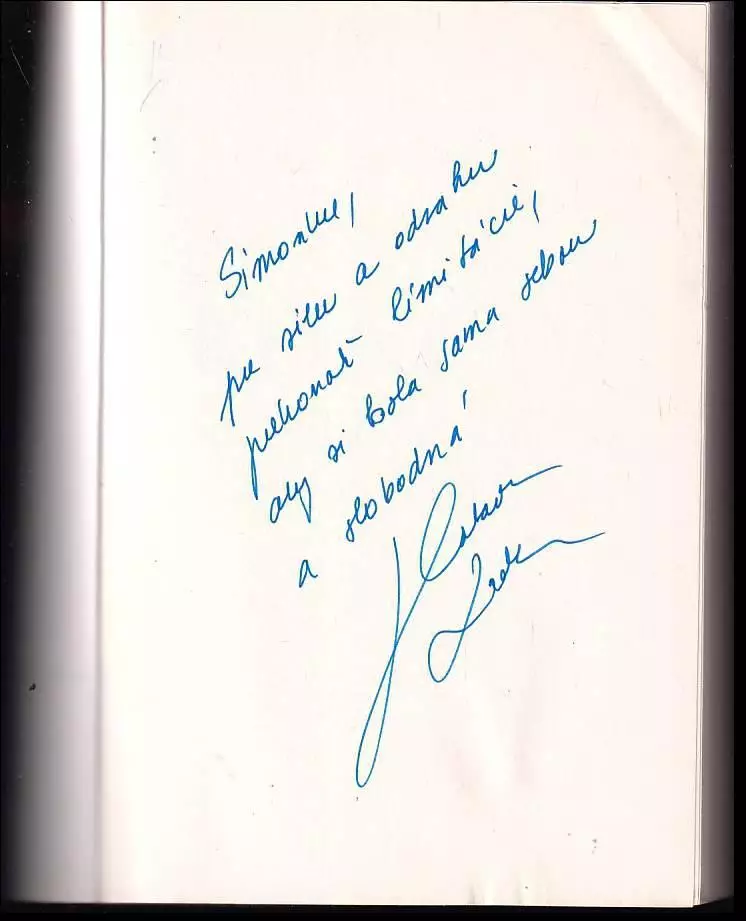 Simonke,
pre silu a odvahu
prekonať limitácie,
aby si bola sama sebou
a slobodná!